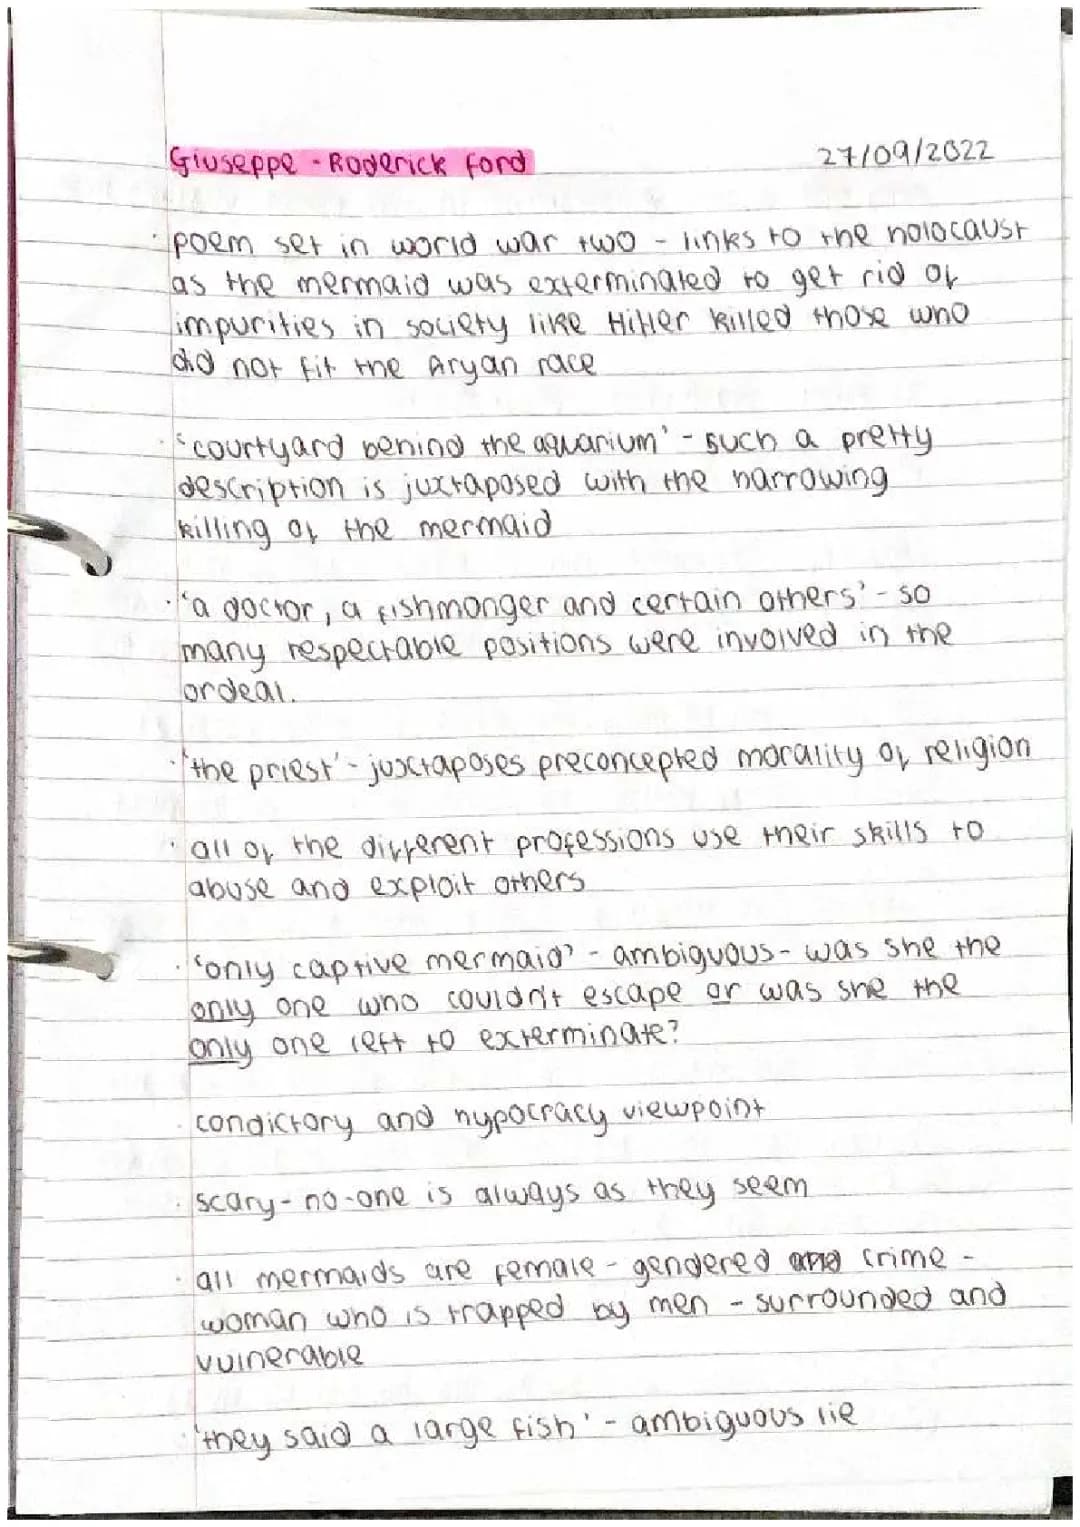 Giuseppe - Roderick Ford
27/09/2022
· poem set in world war two - links to the holocaust
as the mermaid was exterminated to get rid of
impurities in society like Hitler killed those who
did not fit the Aryan race
· 'courtyard behind the aquarium' - such a pretty
description is juxtaposed with the harrowing
killing of the mermaid
· 'a doctor, a fishmonger and certain others' - so
many respectable positions were involved in the
ordeal.
· 'the priest' - juxtaposes preconcepted morality of religion
· all of the different professions use their skills to
abuse and exploit others
· 'only captive mermaid' - ambiguous - was she the
only one who couldn't escape or was she the
only one left to exterminate?
· condictory and hypocracy viewpoint
· scary - no-one is always as they seem
· all mermaids are female - gendered crime -
woman who is trapped by men - surrounded and
vulnerable
· 'they said a large fish' - ambiguous lie